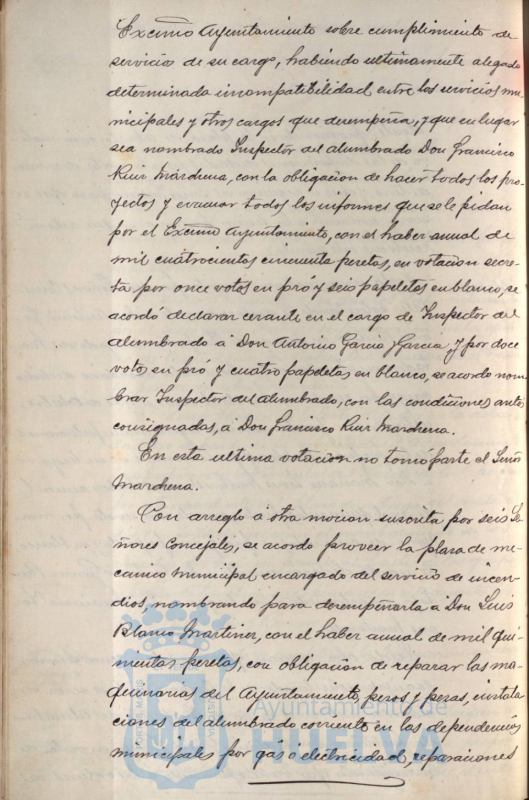 Excmo Ayuntamiento sobre cumplimiento de
servicios de su cargo, habiendo ultimamente alegado
determinada incompatibilidad entre los servicios mu-
nicipales y otros cargos que desempeña, y que en lugar
sea nombrado Inspector del alumbrado Don Francisco
Ruiz Marchena, con la obligacion de hacer todos los pro-
yectos y evacuar todos los informes que se le pidan
por el Excmo Ayuntamiento, con el haber anual de
mil cuatrocientas cincuenta pesetas, en votacion secre-
ta por once votos en pró y seis papeletas en blanco, se
acordó declarar cesante en el cargo de Inspector del
alumbrado á Don Antonio Garcia y Garcia, y por doce
votos en pró y cuatro papeletas en blanco, se acordo nom-
brar Inspector del alumbrado, con las condiciones antes
consignadas, á Don Francisco Ruiz Marchena.
En esta ultima votacion no tomó parte el Señor
Marchena.
Con arreglo á otra mocion suscrita por seis Se-
ñores Concejales, se acordo proveer la plaza de me-
canico municipal encargado del servicio de incen-
dios, nombrando para desempeñarla á Don Luis
Blanco Martinez, con el haber anual de mil qui-
nientas pesetas, con obligacion de reparar las ma-
quinarias del Ayuntamiento, pesos y pesas, instala-
ciones del alumbrado corriente en las dependencias
municipales por gas ó electricidad, reparaciones
Ayuntamiento de
HUELVA